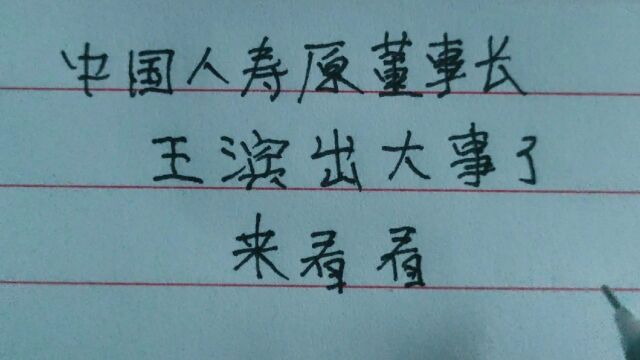 中国人寿原董事长
王滨出大事了
来看看